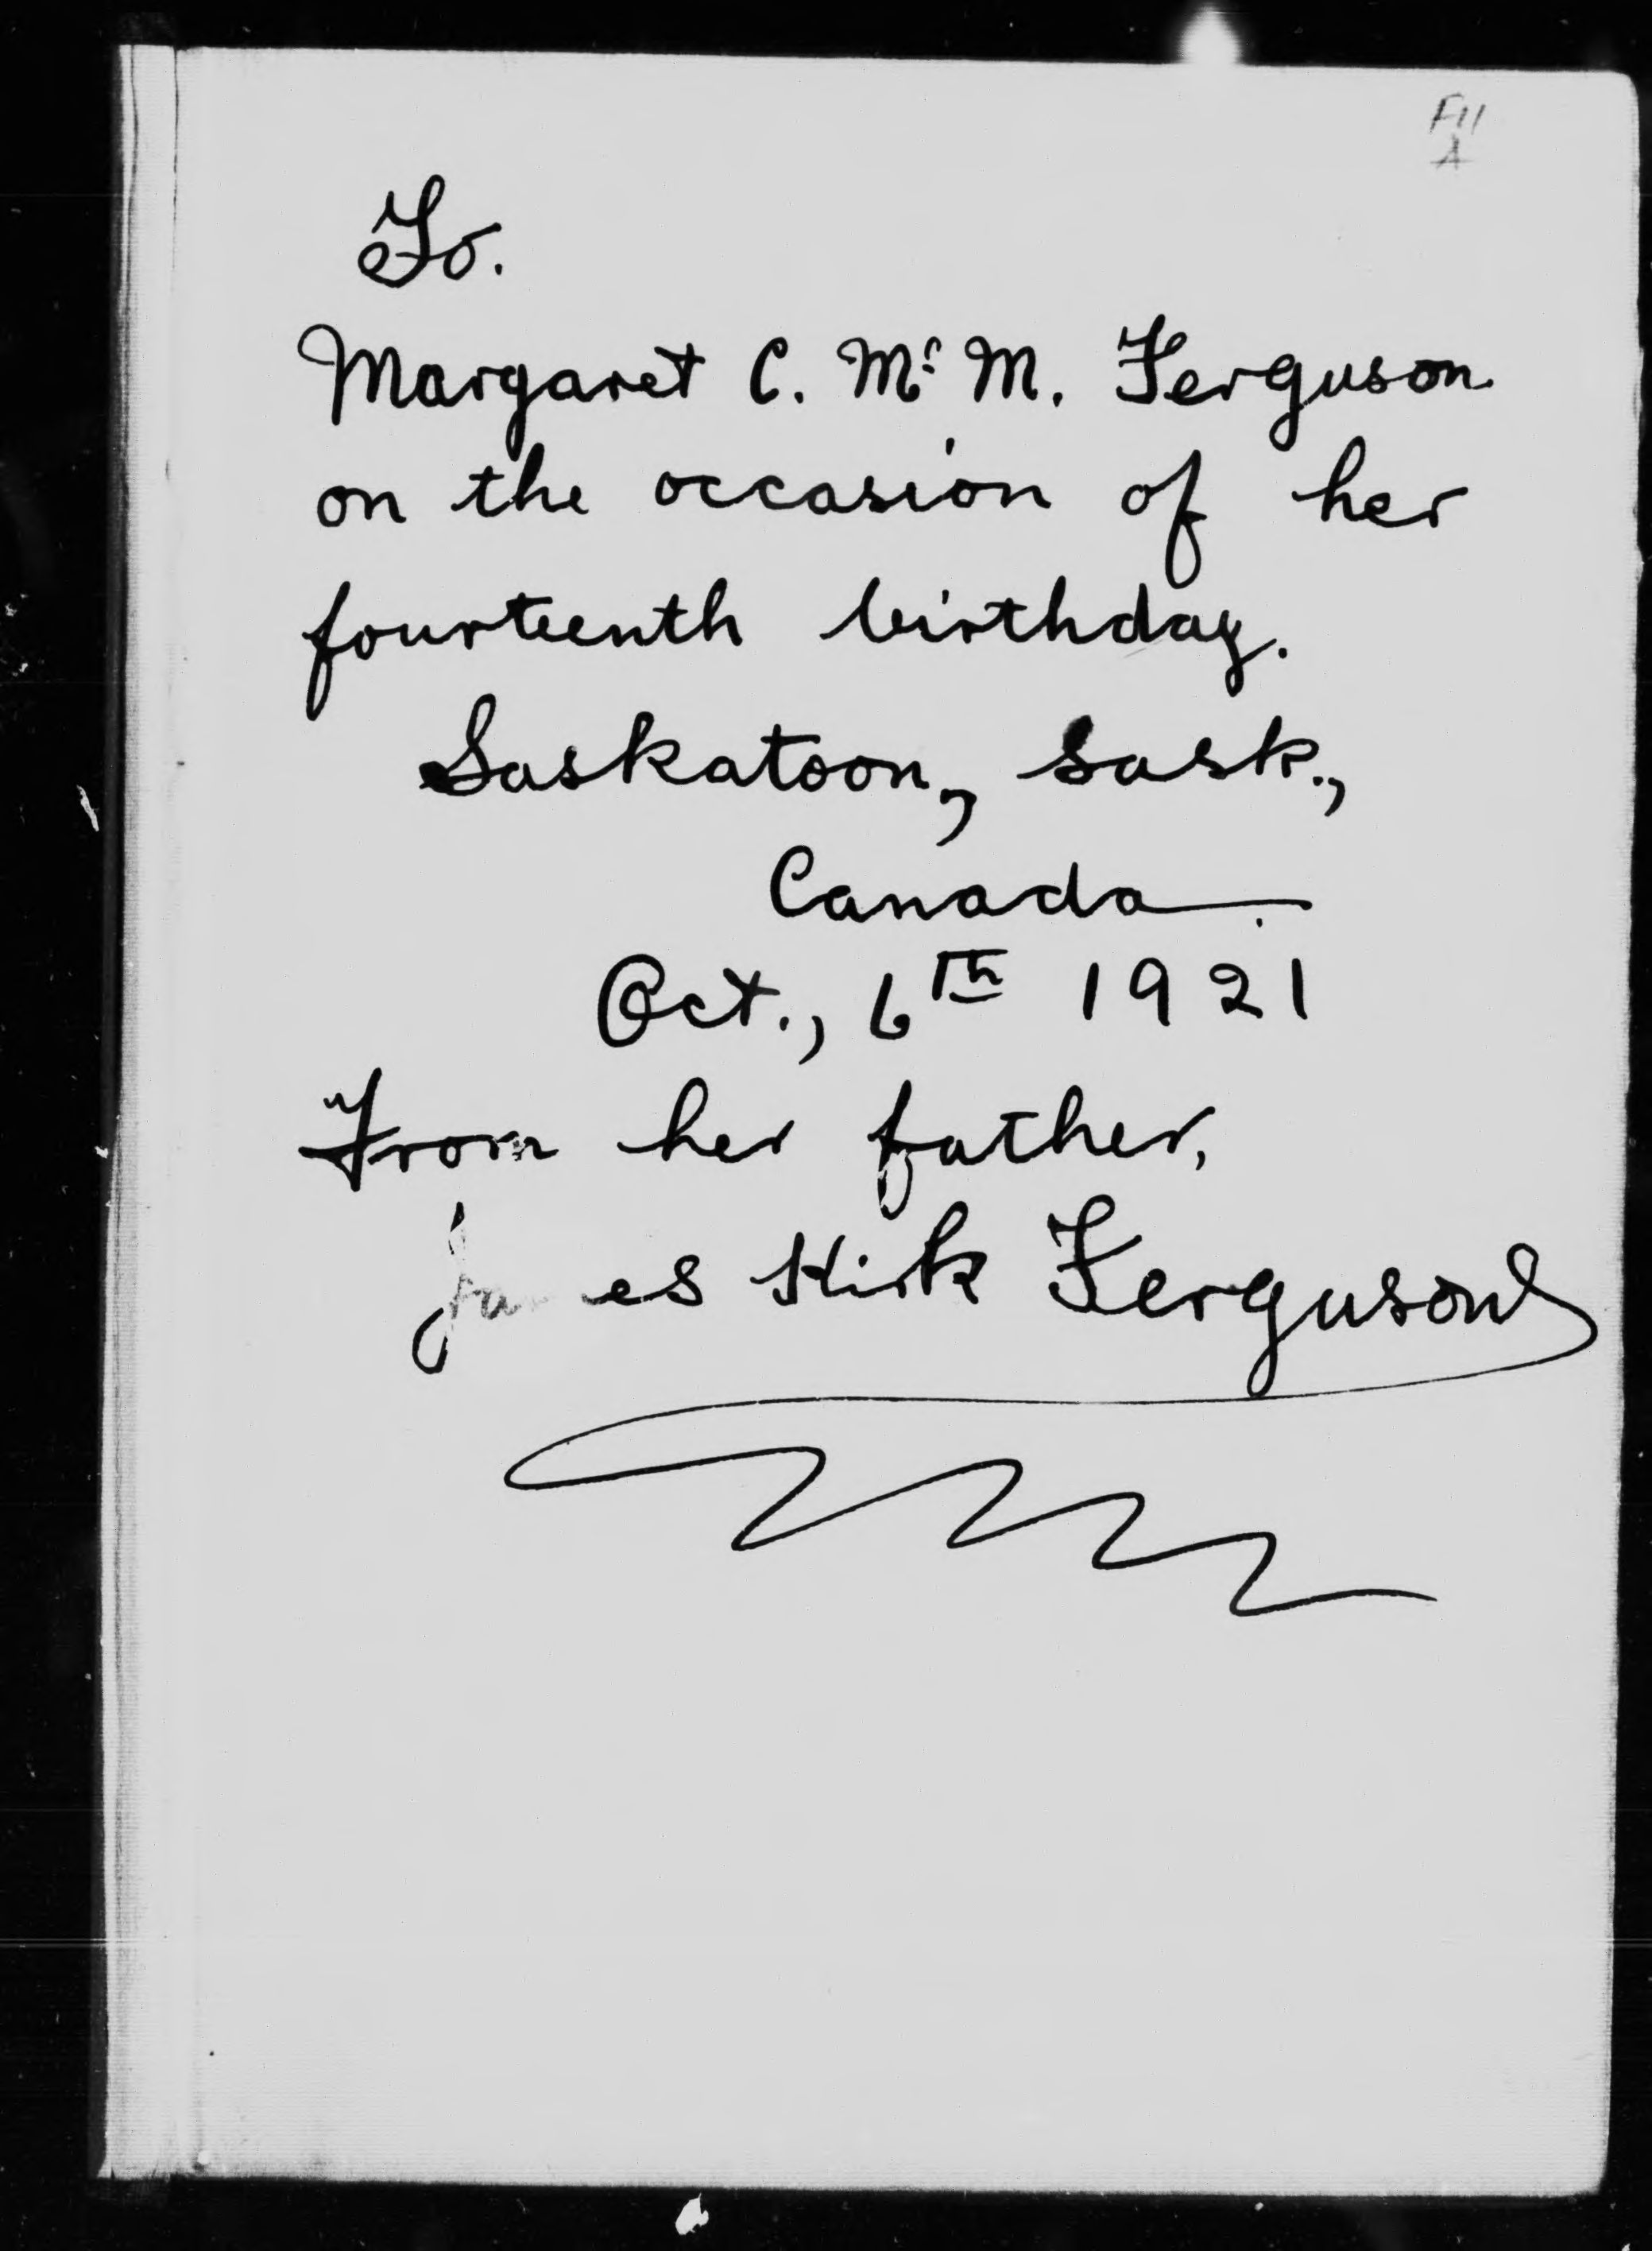 F11
A
To.
Margaret C. Mc M. Ferguson.
on the occasion of her
fourteenth birthday.
Saskatoon, Sask.,
Canada.
Oct., 6th 1921
From her father,
James Kirk Ferguson